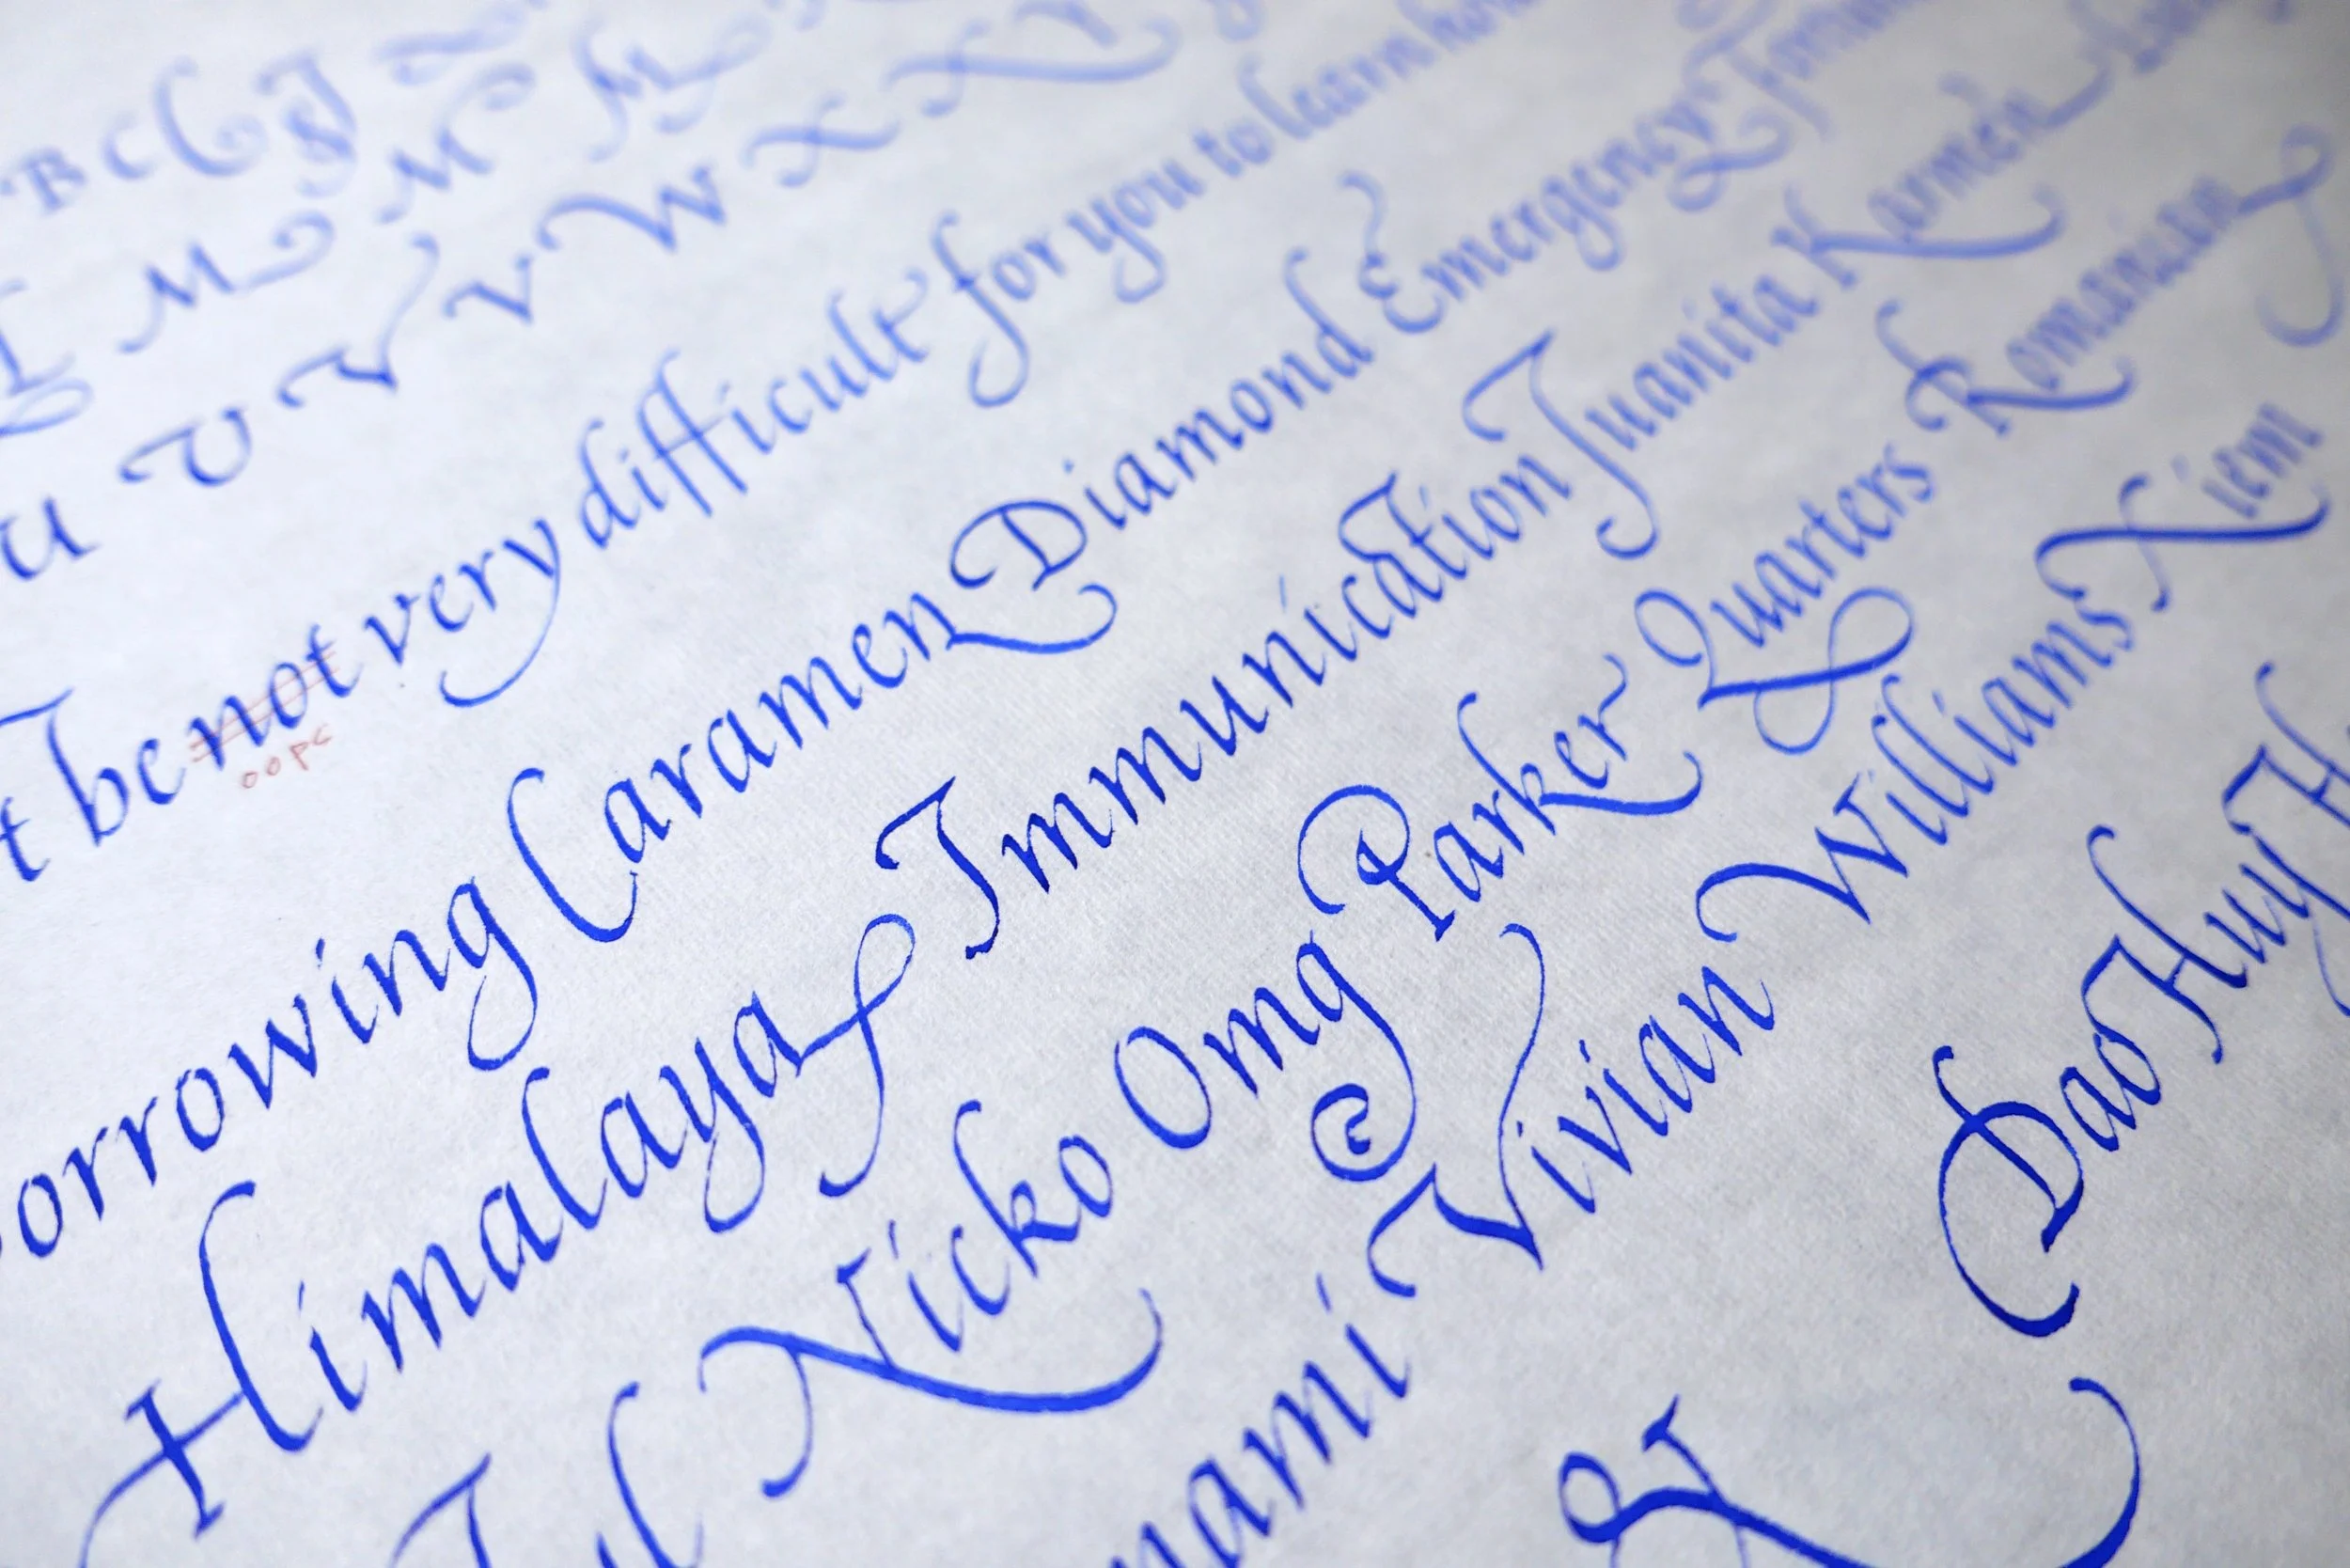 B C C
M M M
u v V V W X X Y
t be not very difficult for you to learn how
oops
orrowing Caramen Diamond Emergency
Himalaya Immunication Juanita Karmen
Nicko Omg Parker Quarters Romanien
nami Vivian Williams Xiem
Dao Huy H